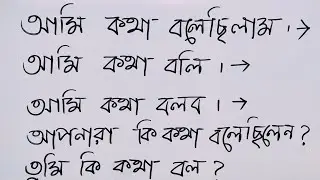 আমি কথা বলেছিলাম ।→
আমি কথা বলি ।→
আমি কথা বলব ।→
আপনারা কি কথা বলেছিলেন ?
তুমি কি কথা বল ?